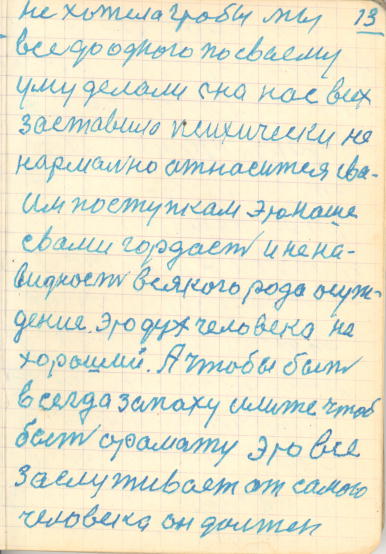 не хотела чтобы мы 13
все до одного по сваему
уму делали она нас всех
заставило психически не
нармално относится сва-
им поступкам это наше
свами гордаст и нена-
видност всякого рода осуж-
дение. Это дух человека не
хороший. А чтобы быт
всегда запаху или же чтоб
быт аромату это все
заслуживает от самого
человека он должен